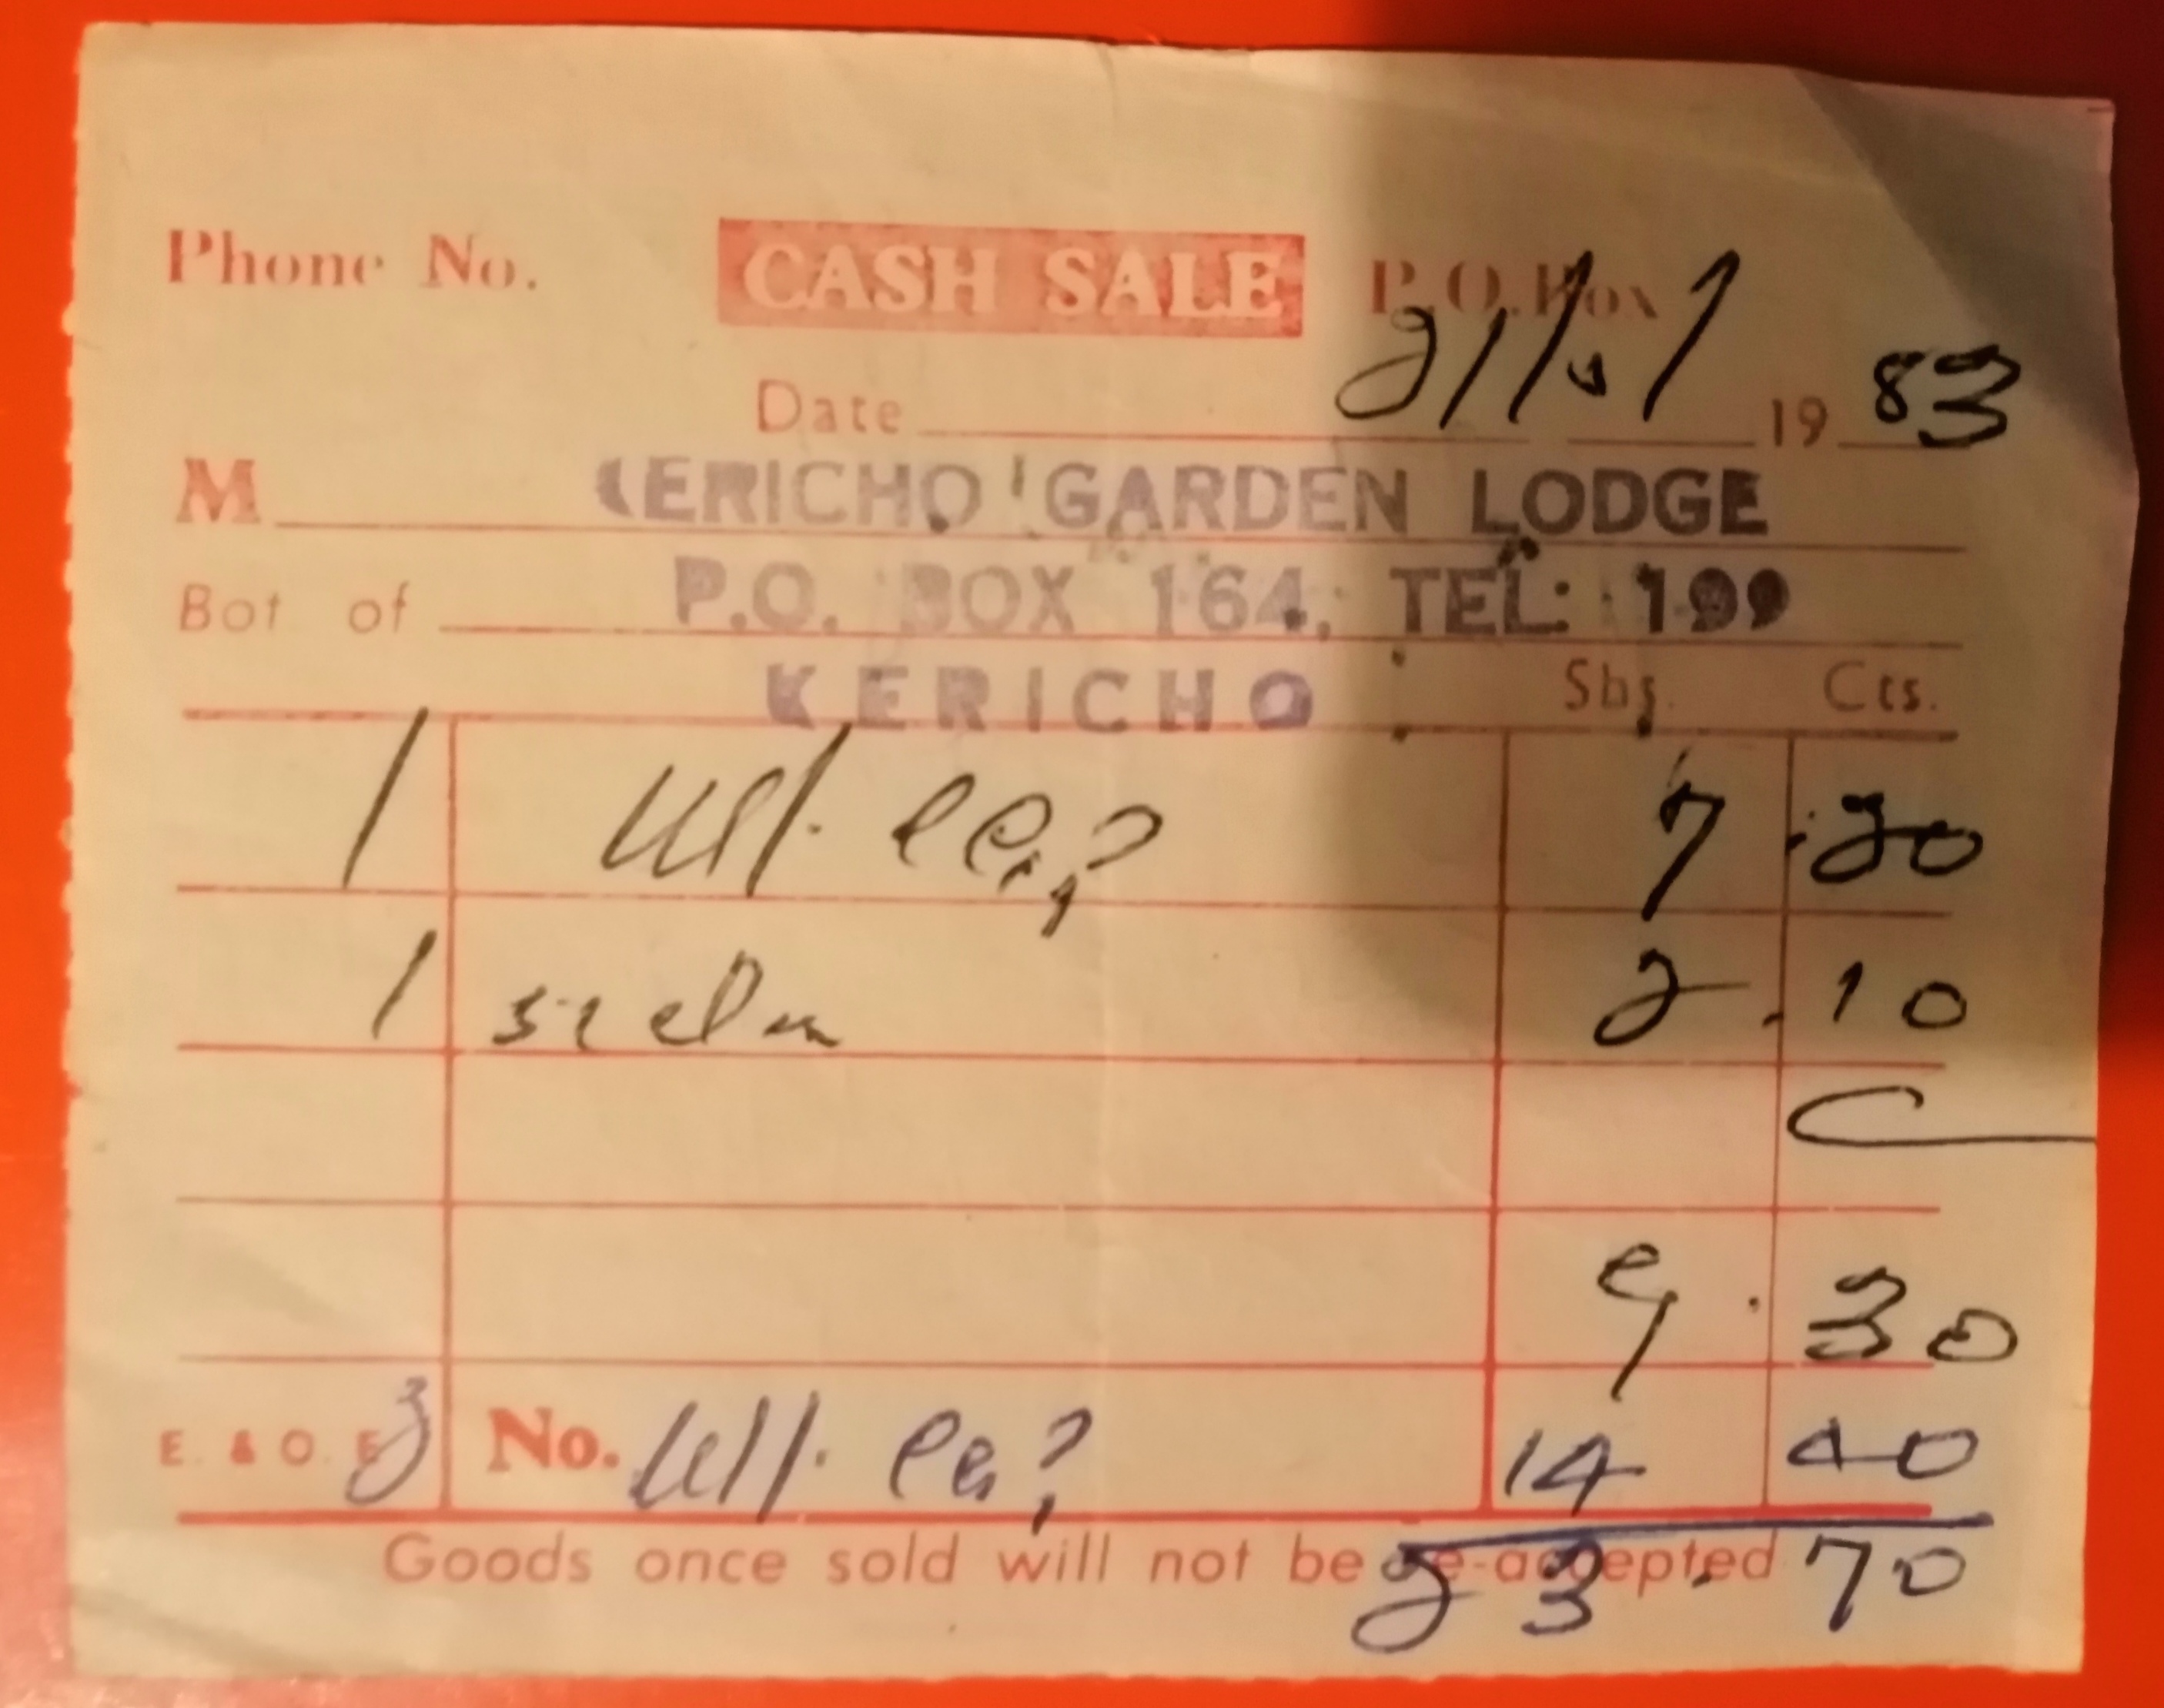 Phone No. CASH SALE P.O.Box
Date 21/ 19 83
M KERICHO GARDEN LODGE
Bot of P.O. BOX 164, TEL: 199
KERICHO
Shs. Cts.
1 7 . 20
1 2 . 10
9 . 30
E. & O. E. No. 14 40
Goods once sold will not be re-accepted
23 . 70